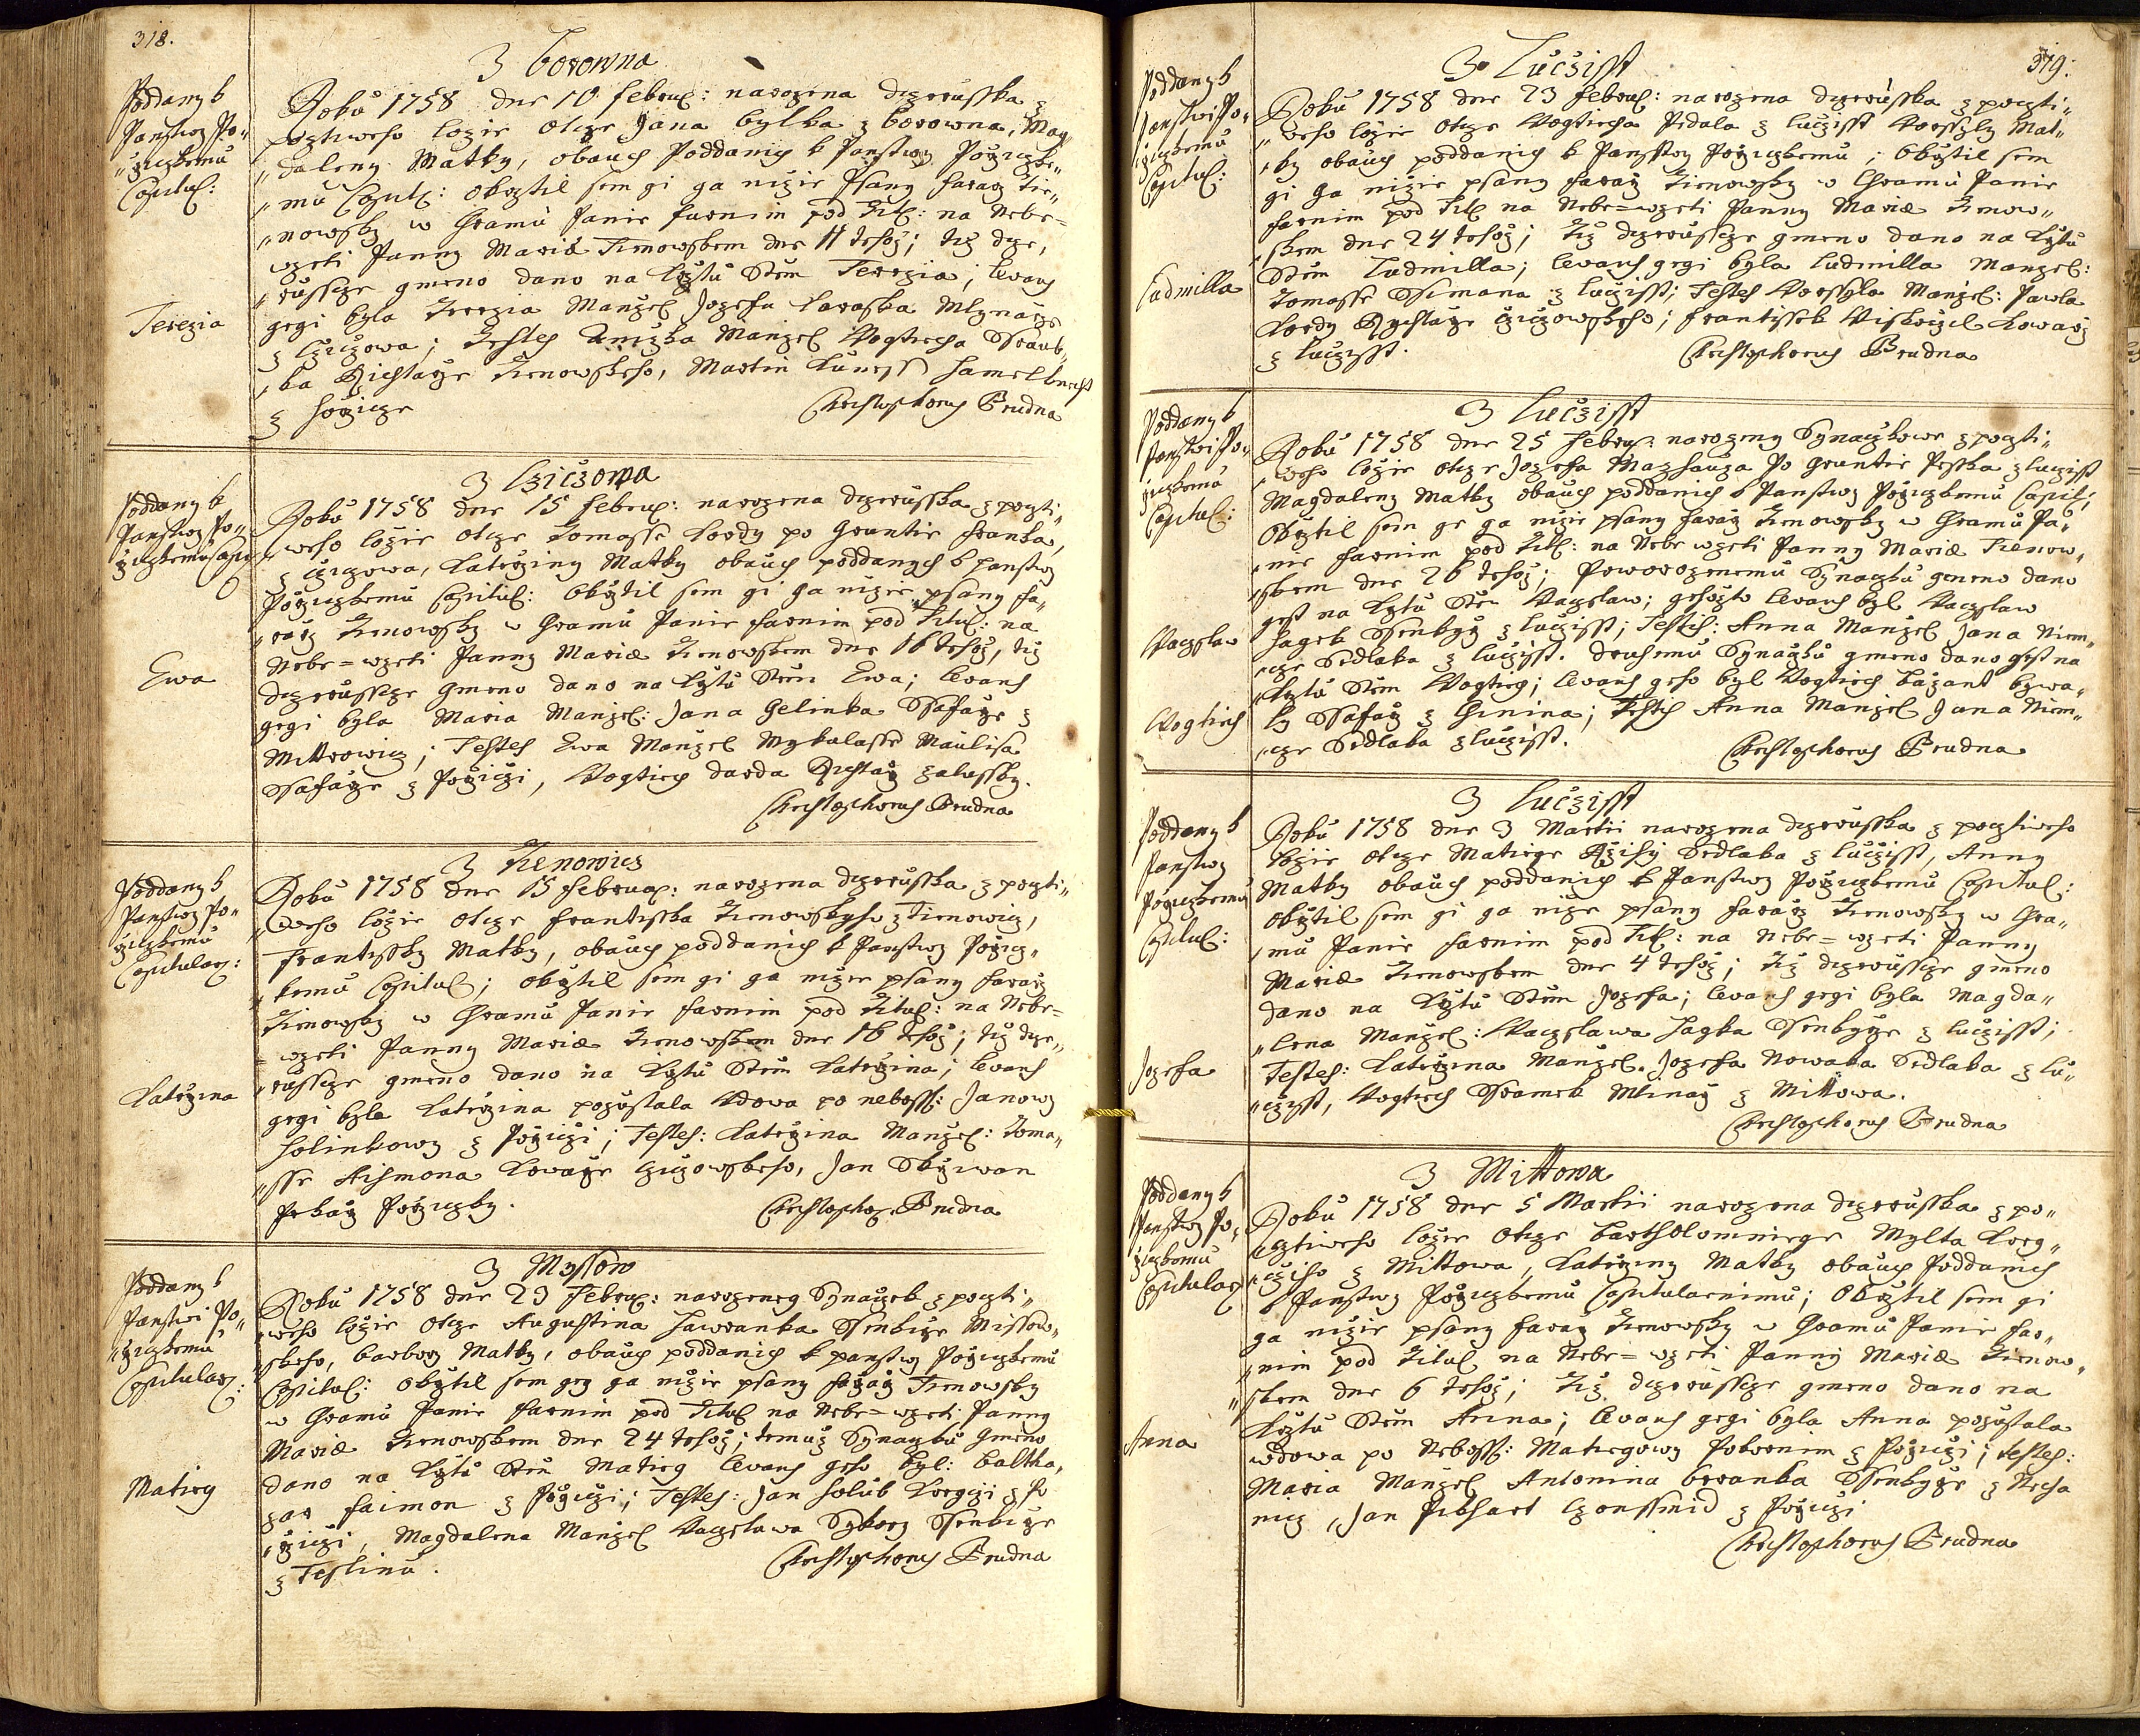 318.
Z Borowna
Poddany k
Panstwj Po„
„ržiczkemu
Capitul:
Terezia
Roku 1758 dne 10 Febru: narozena dczeruſſka z
pocztiweho lozie otcze Jana Bylka z Borowna, Mag
„daleny Matky, obauch Poddanich k Panstwj Poržiczke„
„mu Capitul: Okrztil sem gi ga nižie Psany Fararz Tie„
„nowsky w Chramu Panie Farnim pod Titul: na Nebe=
wzeti Panny Mariæ Tienowskem dne 11 tehož; tež dcze„
„ruſſcze gmeno dano na Krztu Stém Terezia; Levans
gegi byla Terezia Manžel Jozefa Karaska Mlynarze
z Cziczowa; Testes Aniczka Manžel Wogtiecha Skaub„
„ka Richtarze Tienowskeho, Martin Kuneſſ Hamelknecht
z Horžicze
Christophorus Brudna
Z Cziczowa
Poddany k
Panstwj Po„
ržiczkemu Capit
Ewa
Roku 1758 dne 15 Febru: narozena dczeruſſka z poczti„
„weho ložie otcze Tomaſſe Kordy po Gruntie Franka,
z Cziczowa, Katerziny Matky obauch poddanych k panstwj
Poržiczkemu Capitul: Okrztil sem gi ga niže psany Fa„
„rarz Tienowsky w Chramu Panie Farnim pod Titul: na
Nebe=wzeti Panny Mariæ Tienowskem dne 16 tehož, tež
dczeruſſcze gmeno dano na Krztu Stém Ewa; Levans
gegi byla Maria Manžel: Jana Gelinka Ssafarze z
Mittrowicz; Testes Ewa Manžel Mykulaſſe Maulisa
Ssafarze z Poržiczi, Wogtiech Darda Richtarz Zaluſſky.
Christophorus Brudna
Z Tienowicz
Poddany k
Panstwj Po„
ržiczkemu
Capitular:
Katerzina
Roku 1758 dne 15 Februar: narozena dczeruſſka z poczti„
„weho ložie otcze Frantiſſka Tienowskyho z Tienowicz,
Frantiſſky Matky, obauch poddanich k Panstwj Poržicz„
„kemu Capitul; Okrztil sem gi ga niže psany Fararz
Tienowsky w Chramu Panie Farnim pod Titul: na Nebe=
=wzeti Panny Mariæ Tienowskem dne 16 tehož; tež dcze„
„ruſſcze gmeno dano na Krztu Stém Katerzina; Levans
gegi byla Katerzina pozustala Wdowa po neboſſ: Janowj
Holinkowj z Poržiczi; Testes: Katerzina Manžel: Toma„
„ſſe Aismona Kowarze Cziczowskeho, Jan Skrziwan
Pekarz Poržiczky.
Christophor: Brudna
Z Myſſow
Poddany k
Panstwi Po„
„ržiczkemu
Capitular:
Matieg
Roku 1758 dne 23 Febru: narozeneg Synaczek z poczti„
„weho ložie otcze Augustina Hawranka Ssenkirze Miſſow„
„skeho, Barbory Matky, obauch poddanich k panstwj Poržiczkemu
Capitul: Okrztil sem geg ga nižie psany Fararz Tienowsky
w Chramu Panie Farnim pod Titul na Nebe=wzeti Panny
Mariæ Tienowskem dne 24 tehož; temuž Synaczku Gmeno
dano na Krztu Stém Matieg Levans geho byl: Baltha„
zar Faimon z Poržiczi; Testes: Jan Holub Kregczi z Po
„ržiczi, Magdalena Manžel Waczslawa Sykory Ssenkirze
z Testinu.
Christophorus Brudna
319:
Z Lučziſſt
Poddany k
Panstwi Po„
ržiczkemu
Capitul:
Ludmilla
Roku 1758 dne 23 Febru: narozena dczeruſſka z poczti„
„weho ložie otcze Wogtiecha Pedala z Lučziſſt Worſſyly Mat„
„ky obauch poddanich k Panstwj Poržiczkemu; Okrztil sem
gi ga nižie psany Fararz Tienowsky w Chramu Panie
Farnim pod Titl na Nebe=wzeti Panny Mariæ Tienow„
„skem dne 24 tehož; tež dczeruſſcze gmeno dano na Krztu
Stém Ludmilla; Levans gegi byla Ludmilla Manžel:
Tomaſſe Ssimana z Lučziſſt; Testes Worſſyla Manžel: Pawla
Kordy Rychtarze Cziczowskeho; Frantiſſek Kowarz
z Lučziſſt.
Christophorus Brudna
Z Lučziſſt
Poddany k
Panstwi Po„
ržiczkemu
Capitul:
Waczslaw
Wogtiech
Roku 1758 dne 25 Febru: narozeny Synaczkowe z poczti„
„weho ložie otcze Jozefa Mazhauza Po Gruntie Peſſka z Lučziſſt
Magdaleny Matky obauch poddanich k Panstwj Poržiczkemu Capitl;
Okrztil sem ge ga nižie psany Fararz Tienowsky w Chramu Pa„
„nie Farnim pod Titl: na Nebe wzeti Panny Mariæ Tienow„
„skem dne 26 tehož; Prworozenemu Synaczku gmeno dano
gest na Krztu Stém Waczslaw; gehožto Levans byl Waczslaw
Hagek Ssenkyrz z Lučziſſt; Testes: Anna Manžel Jana Niem„
„cze Sedlaka z Lučziſſt. Druhemu Synaczku gmeno dano gest na
„Krztu Stém Wogtiech; Levans geho byl Wogtiech Bažant bywa„
ly Ssafarz z Chinina; Testes Anna Manžel Jana Niem„
„cze Sedlaka z Lučziſſt.
Christophorus Brudna
Z Lučziſſt
Poddany k
Panstwj
Poržiczkemu
Capitul:
Jozefa
Roku 1758 dne 3 Martii narozena dczeruſſka z pocztiweho
ložie otcze Matiege Ržihy Sedlaka z Lučziſſt, Anny
Matky obauch poddanich k Panstwj Poržiczkemu Capitul:
Okrztil sem gi ga niže psany Fararz Tienowsky w Chra„
„mu Panie Farnim pod Titl: na Nebe=wzeti Panny
Mariæ Tienowskem dne 4 tehož; tež dczeruſſcze gmeno
dano na Krztu Stém Jozefa; Levans gegi byla Magda„
„lena Manžel: Waczslawa Hagka Ssenkyrze z Lučziſſt;
Testes: Katerzina Manžel. Jozefa Nowaka Sedlaka z Lu„
„cziſſt, Wogtiech Ssramek Mlinarz z Mittowa.
Christophorus Brudna
Z Mittowa
Poddany k
Panstwj Po„
ržiczkemu
Capitular
Anna
Roku 1758 dne 5 Martii narozena dczeruſſka z po„
„cztiweho ložie Otcze Bartholomniege Mylta Kreg„
„cziho z Mittowa, Katerziny Matky obauch Poddanich
k Panstwj Poržiczkemu Capitularnimu; Okrztil sem gi
ga nižie psany Fararz Tienowsky w Chramu Panie Far„
„nim pod Titul na Nebe=wzeti Panny Mariæ Tienow„
„skem dne 6 tehož; tež dczeruſſcze gmeno dano na
Krztu Stém Anna; Levans gegi byla Anna pozustala
wdowa po Neboſſ: Matiegowj Pokornim z Poržiczi; Testes:
Maria Manžel Antonina Beranka Ssenkyrze z Necha
nicz, Jan Pikhart z Poržiczi
Christophorus Brudna